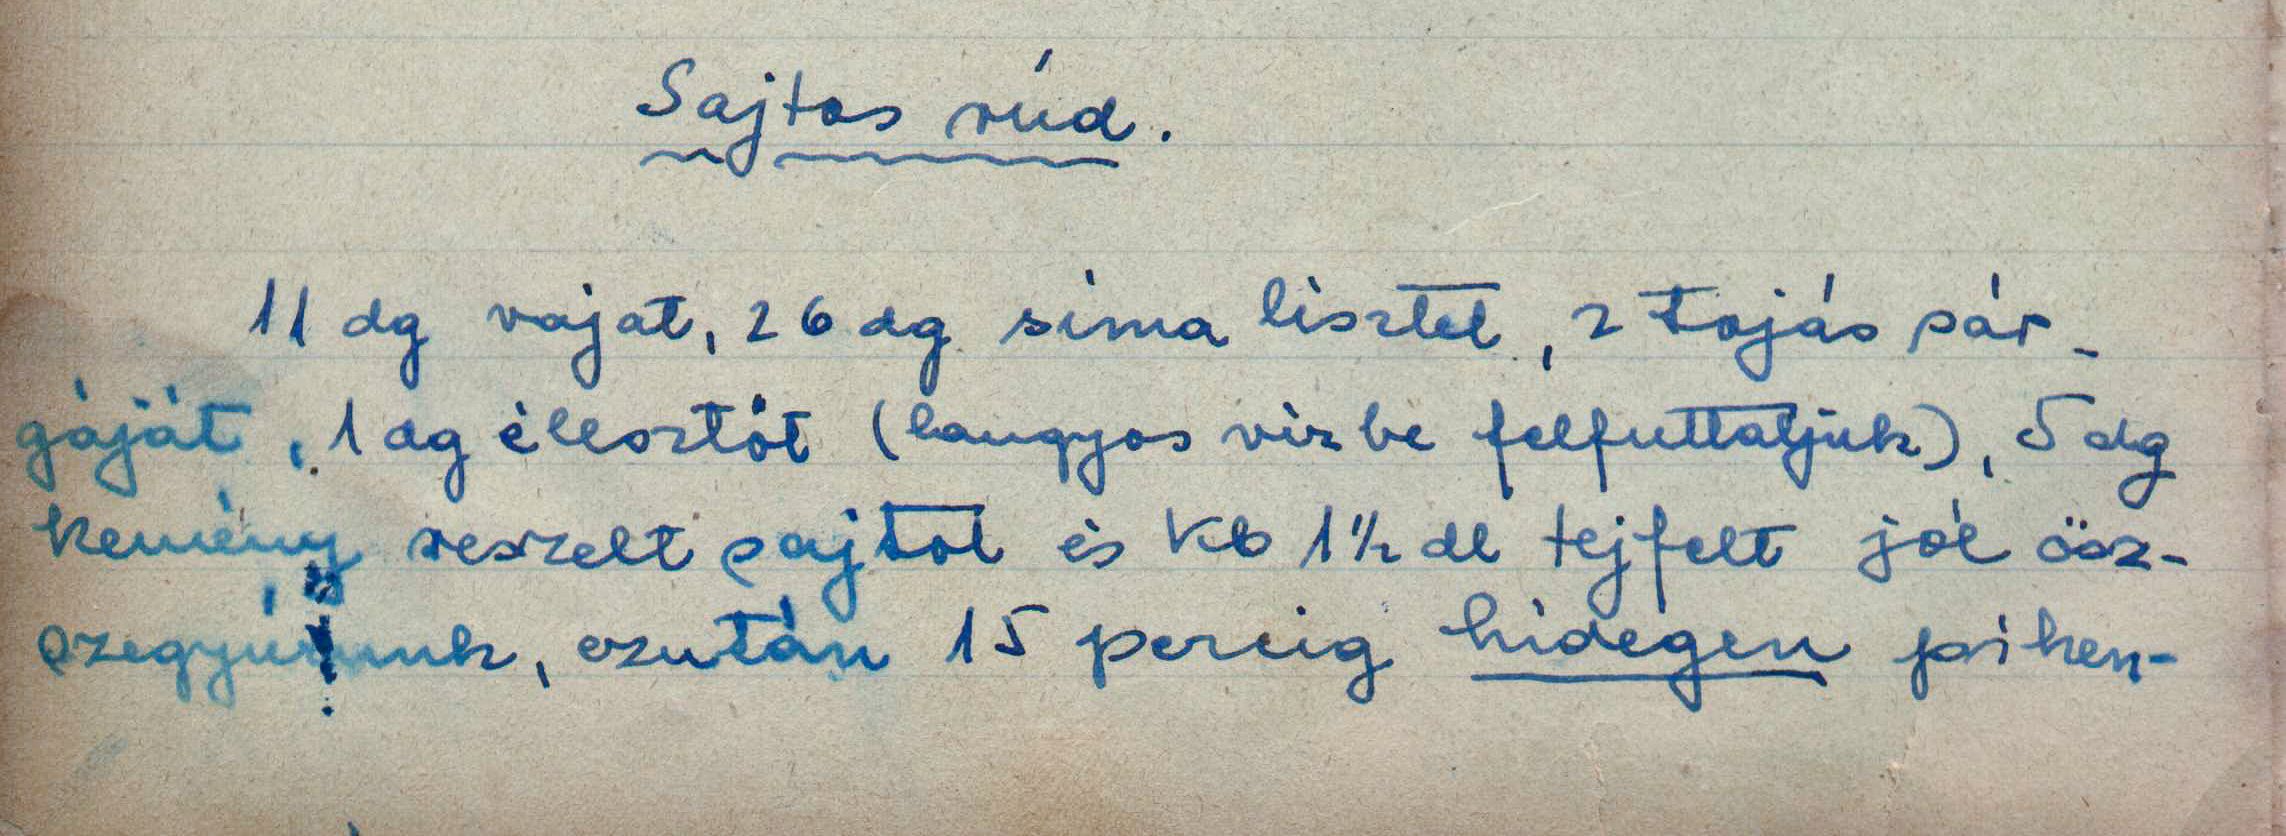 Sajtos rúd.
11 dg vajat, 26 dg sima lisztet, 2 tojás sár-
gáját, 1 dg élesztőt (langyos vízbe felfuttatjuk), 5 dg
kemény reszelt sajtot és kb 1 1/2 dl tejfelt jól ösz-
szegyúrunk, ezután 15 percig hidegen pihen-